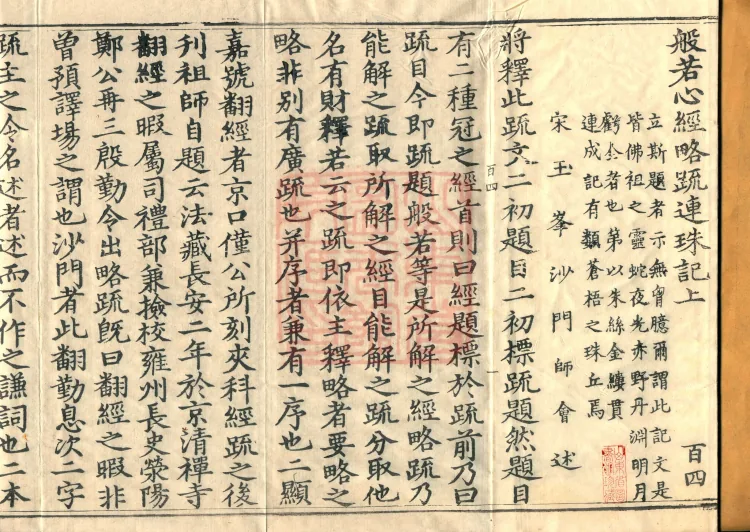 般若心經略疏連珠記上 百四
立斯題者示無胷臆爾謂此記文是
皆佛祖之靈蛇夜光赤野丹淵明月
虧全者也第以朱絲金纕貫
連成記有類蒼梧之珠丘焉
宋玉峯沙門師會述
將釋此疏文二初題目二初標疏題然題目
百四
有二種冠之經首則曰經題標於疏前乃曰
疏目今即疏題般若等是所解之經略疏乃
能解之疏取所解之經目能解之疏分取他
名有財釋若云之疏即依主釋略者要略之
略非别有廣疏也并序者兼有一序也二顯
嘉號翻經者京口僅公所刻夾科經疏之後
刋祖師自題云法藏長安二年於京清禪寺
翻經之暇屬司禮部兼撿校雍州長史滎陽
鄭公再三殷勤令出略疏既曰翻經之暇非
曽預譯場之謂也沙門者此翻勤息次二字
疏主之令名述者述而不作之謙詞也二本